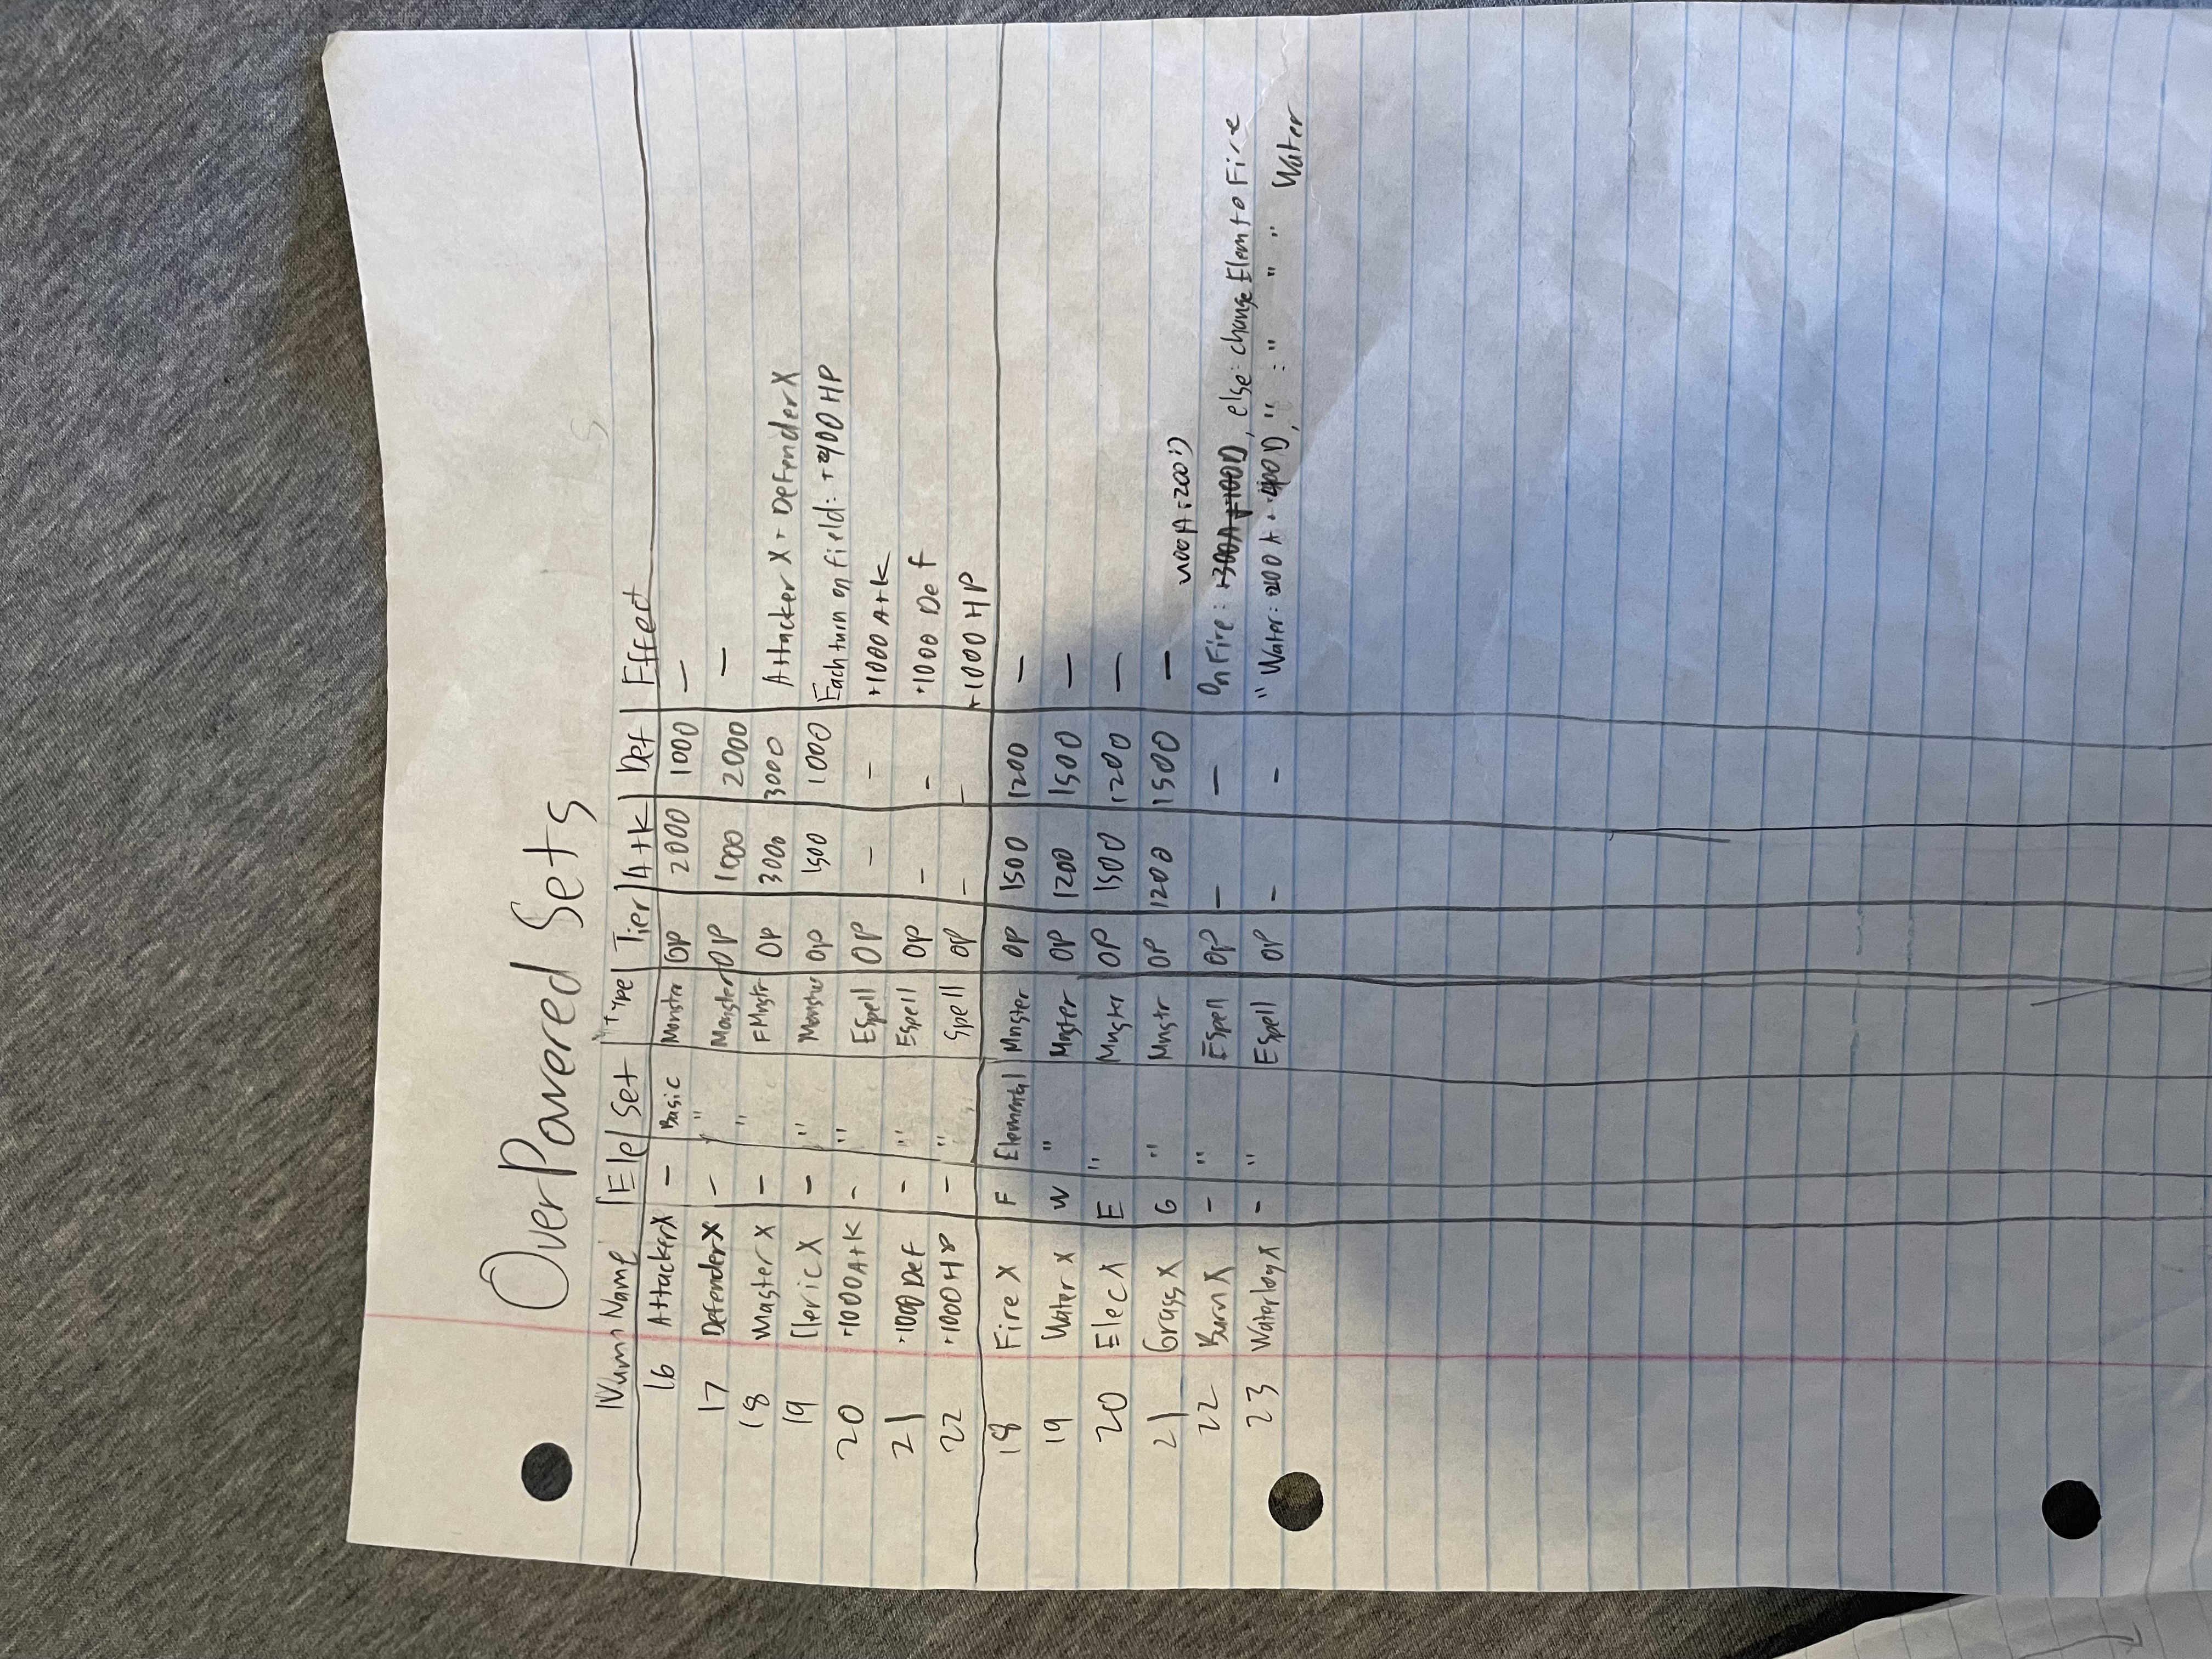 OverPowered Sets
Num Name Ele Set Type Tier Atk Def Effect
16 AttackerX - Basic Monster OP 2000 1000 -
17 DefenderX - " Monster OP 1000 2000 -
18 Master X - " FMnstr OP 3000 3000 Attacker X + DefenderX
19 Cleric X - " Monster OP 1500 1000 Each turn on field: +400 HP
20 +1000 Atk - " ESpell OP - - +1000 Atk
21 +1000 Def - " ESpell OP - - +1000 Def
22 +1000 HP - " Spell OP - - +1000 HP
18 Fire X F Elemental Mnster OP 1500 1200 -
19 Water X W " Mnster OP 1200 1500 -
20 Elec X E " Mnster OP 1500 1200 -
21 Grass X G " Mnstr OP 1200 1500 -
22 Burn X - " ESpell OP - - On Fire: +300A +100D, else: change Elem to Fire
23 Waterlog X - " ESpell OP - - " Water: 200 A + 400 D, " : " " " Water